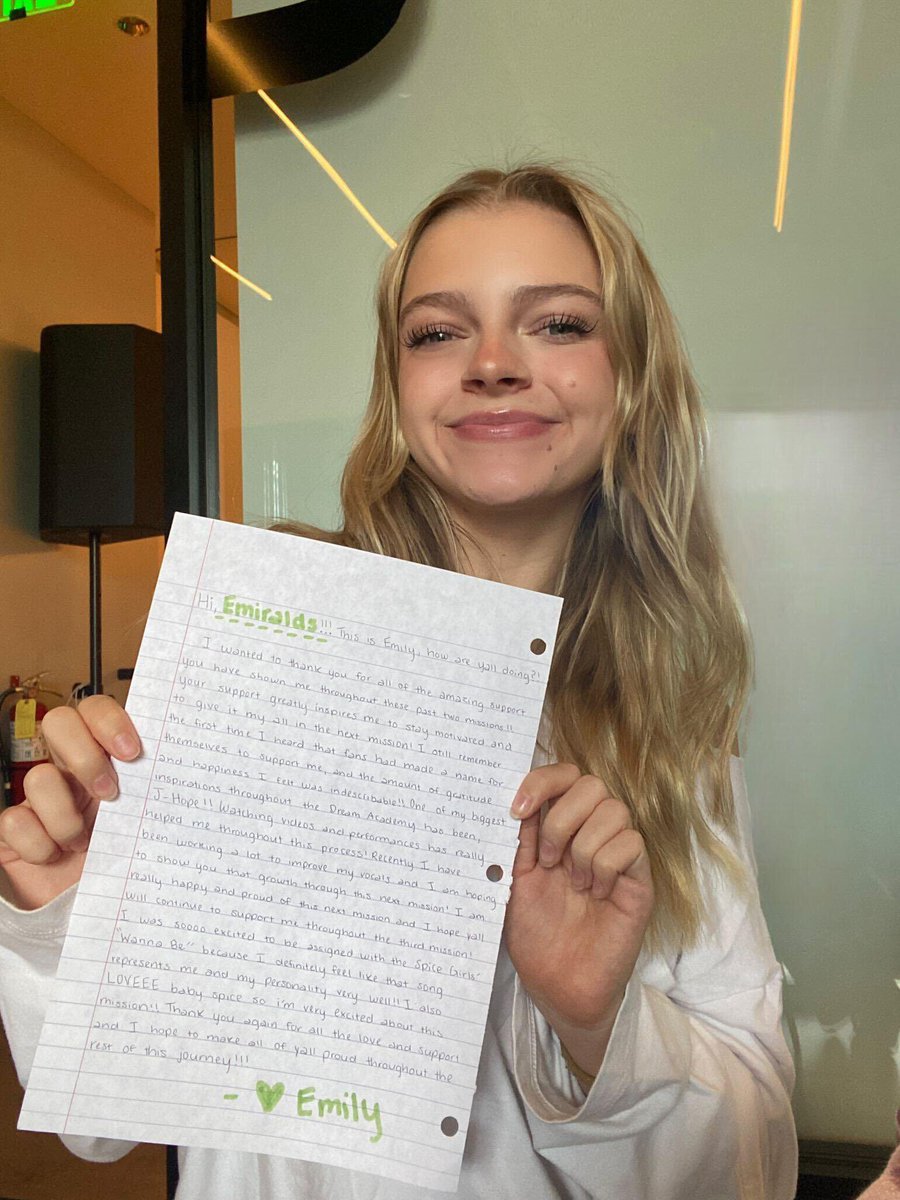 Hi, Emiralds!!! This is Emily, how are yall doing?!
I wanted to thank you for all of the amazing support
you have shown me throughout these past two missions!!
your support greatly inspires me to stay motivared and
to give it my all in the next mission! I still remember
the first time I heard that fans had made a name for
themselves to support me, and the amount of gratitude
and happiness I felt was indescribable!! One of my biggest
inspirations throughout the Dream Academy has been
J-Hope!! Watching videos and performances has really
helped me throughout this process! Recently I have
been working a lot to improve my vocals and I am hoping
to show you that growth through this next mission! I am
really happy and proud of this next mission and I hope yall
will continue to support me throughout the third mission!
I was soooo excited to be assigned with the Spice Girls'
"Wanna Be" because I definitely feel like that song
represents me and my personality very well!! I also
LOVEEE baby spice so i'm very excited about this
mission!! Thank you again for all the love and support
and I hope to make all of yall proud throughout the
rest of this journey!!!
- ♥ Emily